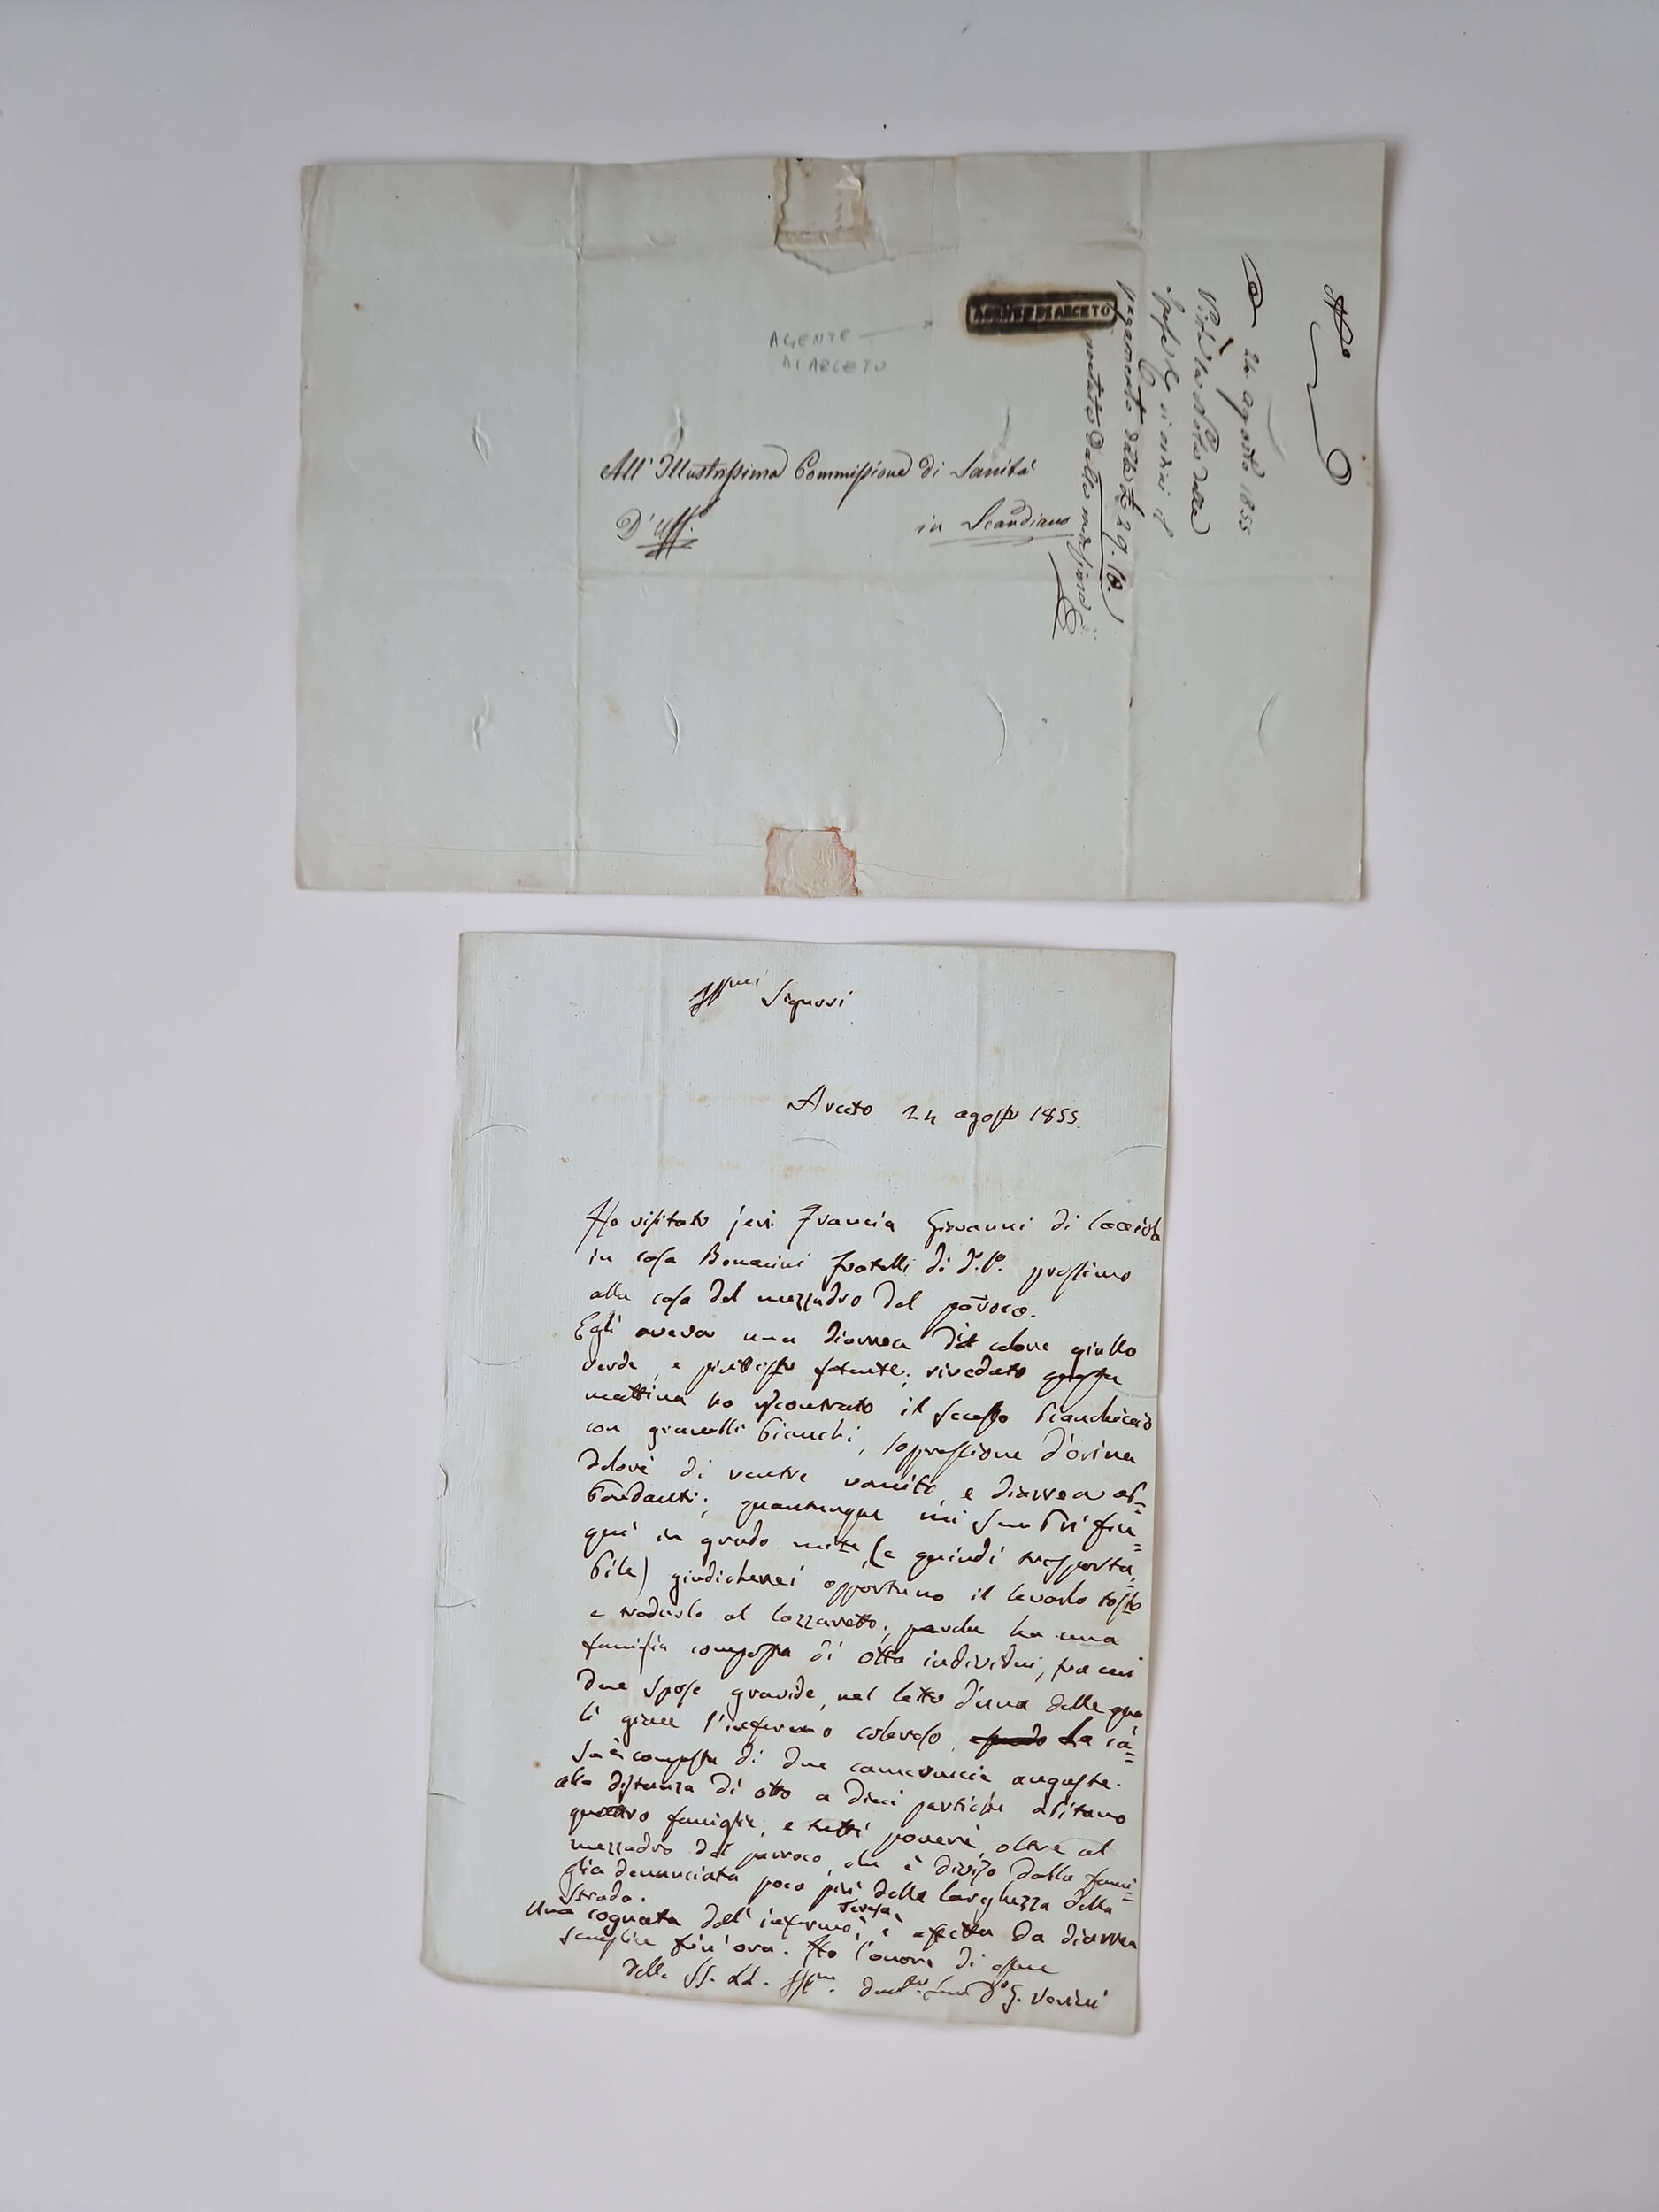 AGENTE DI ARCETO
AGENTE
DI ARCETO
All' Illustrissima Commissione di Sanità
D'Uff.o
in Scandiano
24 agosto 1855
Vista la Nota delle
Spese si ordini il
pagamento delle 29.10.
portato dalla medesima
Ill.mi Signori
Arceto 24 agosto 1855.
Ho visitato jeri Francia Giovanni di Cacciola
in casa Bonacini fratelli di prossimo
alla casa del mezzadro del paroco.
Egli aveva una diarrea di colore giallo
verde, e piuttosto fetente; riveduto questa
mattina ho riscontrato il secesso biancheccio
con granelli bianchi, soppressione d'orina
dolori di ventre vomito, e diarrea ab=
bondanti; quantunque mi sembri fin=
qui in grado mite, (e quindi trasporta=
bile) giudicherei opportuno il levarlo tosto
e tradurlo al lazzaretto; perche ha una
famiglia composta di otto individui, tra cui
due spose gravide, nel letto d'una delle qua
li giace l'infermo coleroso. La ca=
sa è composta di due cameruccie anguste.
alla distanza di otto a dieci pertiche abitano
quattro famiglie, e tutti poveri, oltre al
mezzadro del parroco, che è diviso dalla fami=
glia denunciata poco più della larghezza della
strada.
Una cognata dell' infermo, Teresa, è affetta da diarrea
semplice fin'ora. Ho l'onore di essere
delle SS. LL. Ill.me D.r G.